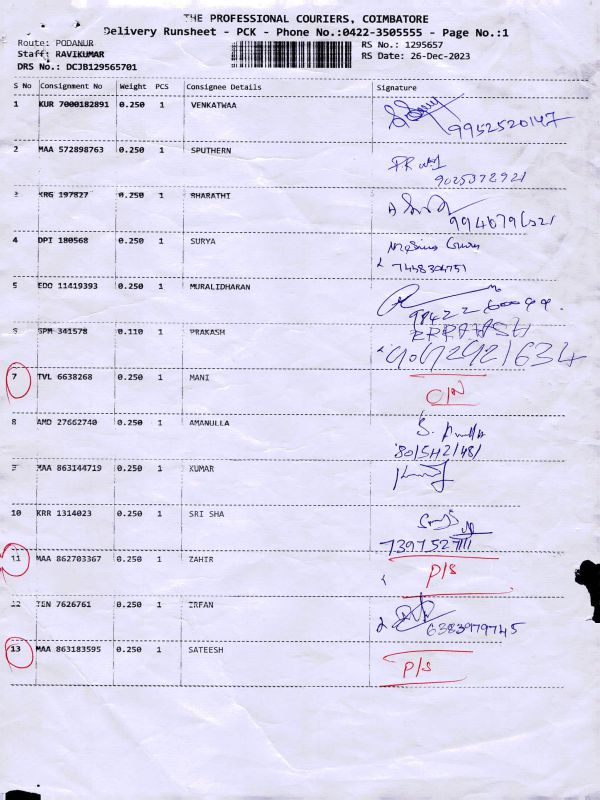 THE PROFESSIONAL COURIERS, COIMBATORE
Delivery Runsheet - PCK - Phone No.:0422-3505555 - Page No.:1
Route: PODANUR RS No.: 1295657
Staff: RAVIKUMAR RS Date: 26-Dec-2023
DRS No.: DCJB129565701
S No Consignment No Weight PCS Consignee Details Signature
1 KUR 7000182891 0.250 1 VENKATWAA
9952520147
2 MAA 572898763 0.250 1 SPUTHERN
9025372921
3 KRG 197827 0.250 1 BHARATHI
4 DPI 180568 0.250 1 SURYA
7448304751
5 EDO 11419393 0.250 1 MURALIDHARAN
6 SPM 341578 0.110 1 PRAKASH
7 TVL 6638268 0.250 1 MANI
8 AMD 27662740 0.250 1 AMANULLA
9 MAA 863144719 0.250 1 KUMAR
10 KRR 1314023 0.250 1 SRI SHA
11 MAA 862703367 0.250 1 ZAHIR P/S
12 TEN 7626761 0.250 1 IRFAN
6383979745
13 MAA 863183595 0.250 1 SATEESH P/S